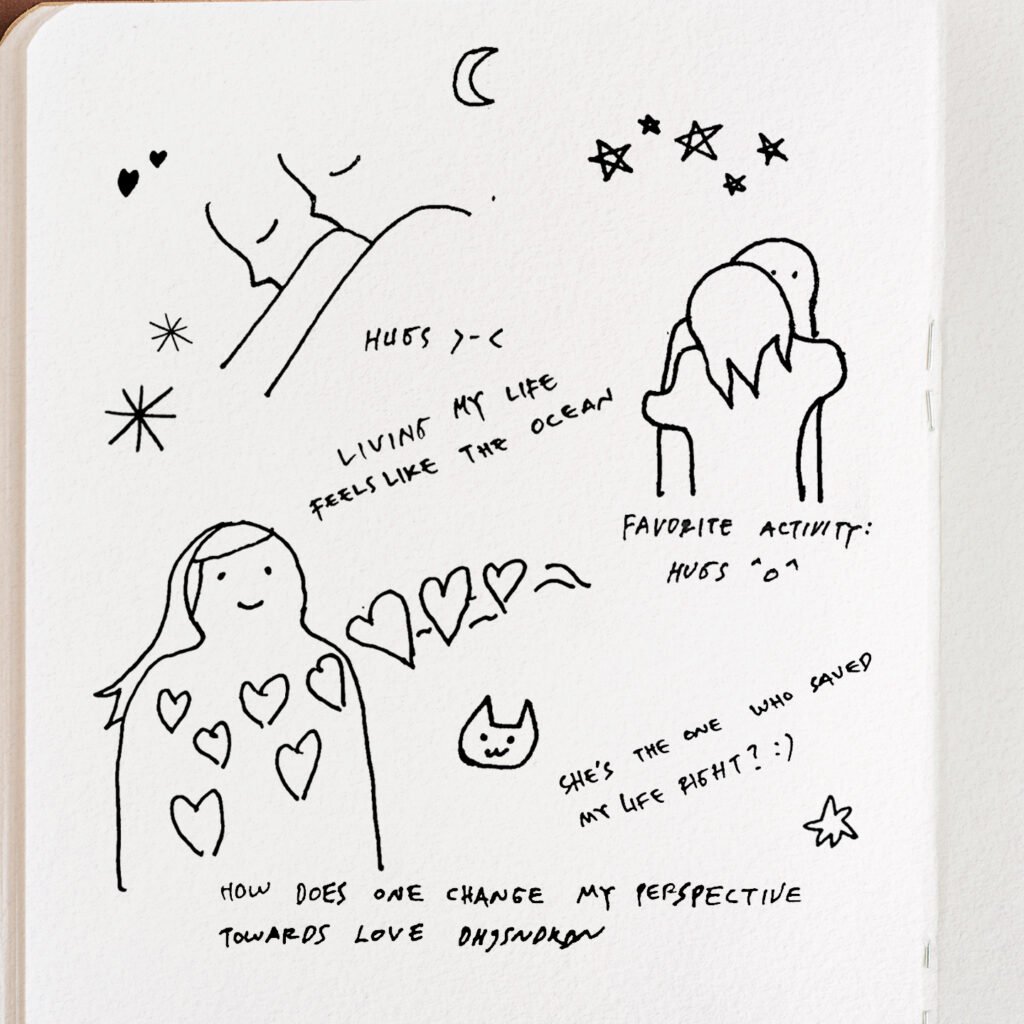 HUGS >-<
LIVING MY LIFE
FEELS LIKE THE OCEAN
FAVORITE ACTIVITY:
HUGS ^o^
SHE'S THE ONE WHO SAVED
MY LIFE RIGHT? :)
HOW DOES ONE CHANGE MY PERSPECTIVE
TOWARDS LOVE